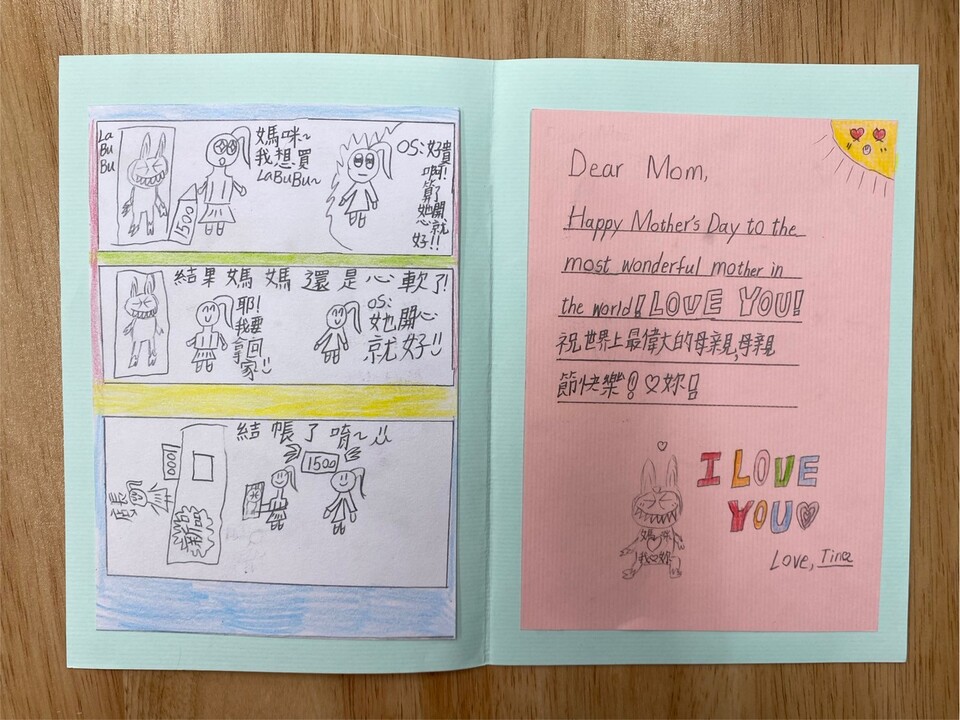 La
Bu
Bu
1500
媽咪~
我想買
LaBuBu~
OS:好貴
啊!
算了
她開
心就
好!!
結果媽媽還是心軟了!
耶!
我要
拿回
家!!
OS:
她開心
就好!!
結帳了唷~
1500
1000
店長
Dear Mom,
Happy Mother's Day to the
most wonderful mother in
the world! LOVE YOU!
祝世界上最偉大的母親,母親
節快樂!♡妳!!
I LOVE
YOU♡
媽咪
我♡妳
Love, Tina